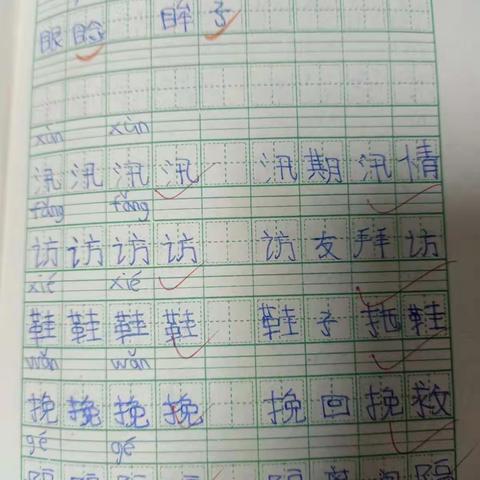 眼睑 眸子
xùn xùn
汛汛汛汛 汛期汛情
fǎng fǎng
访访访访 访友拜访
xié xié
鞋鞋鞋鞋 鞋子拖鞋
wǎn wǎn
挽挽挽挽 挽回挽救
gé gé
隔隔隔隔 隔